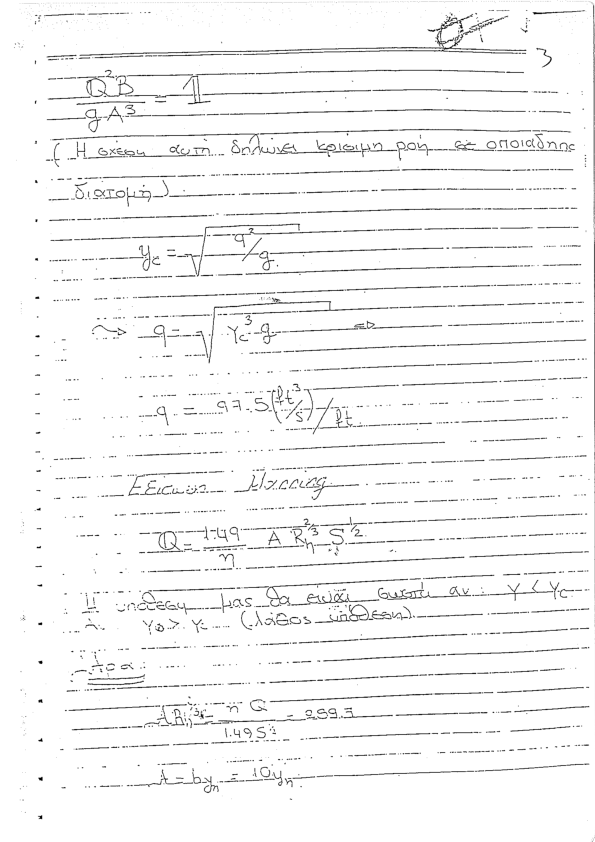 3
Q²B / gA³ = 1
( Η σχέση αυτή δηλώνει κρίσιμη ροή σε οποιαδηπς
διατομή ).
y_c = √(q²/g)
⤳ q = √(Y_c³ g) ⇒
q = 97.5 (ft³/s) / ft
Εξίσωση Manning
Q = 1.49/n A R_h^2/3 S^1/2
Η υπόθεση μας θα είναι σωστή αν: Y < Y_c
Αν Y_0 > Y_c (λάθος υπόθεση)
Άρα:
A R_h^2/3 = n Q / 1.49 S^1/2 = 299.3
A = b y_n = 10 y_n.